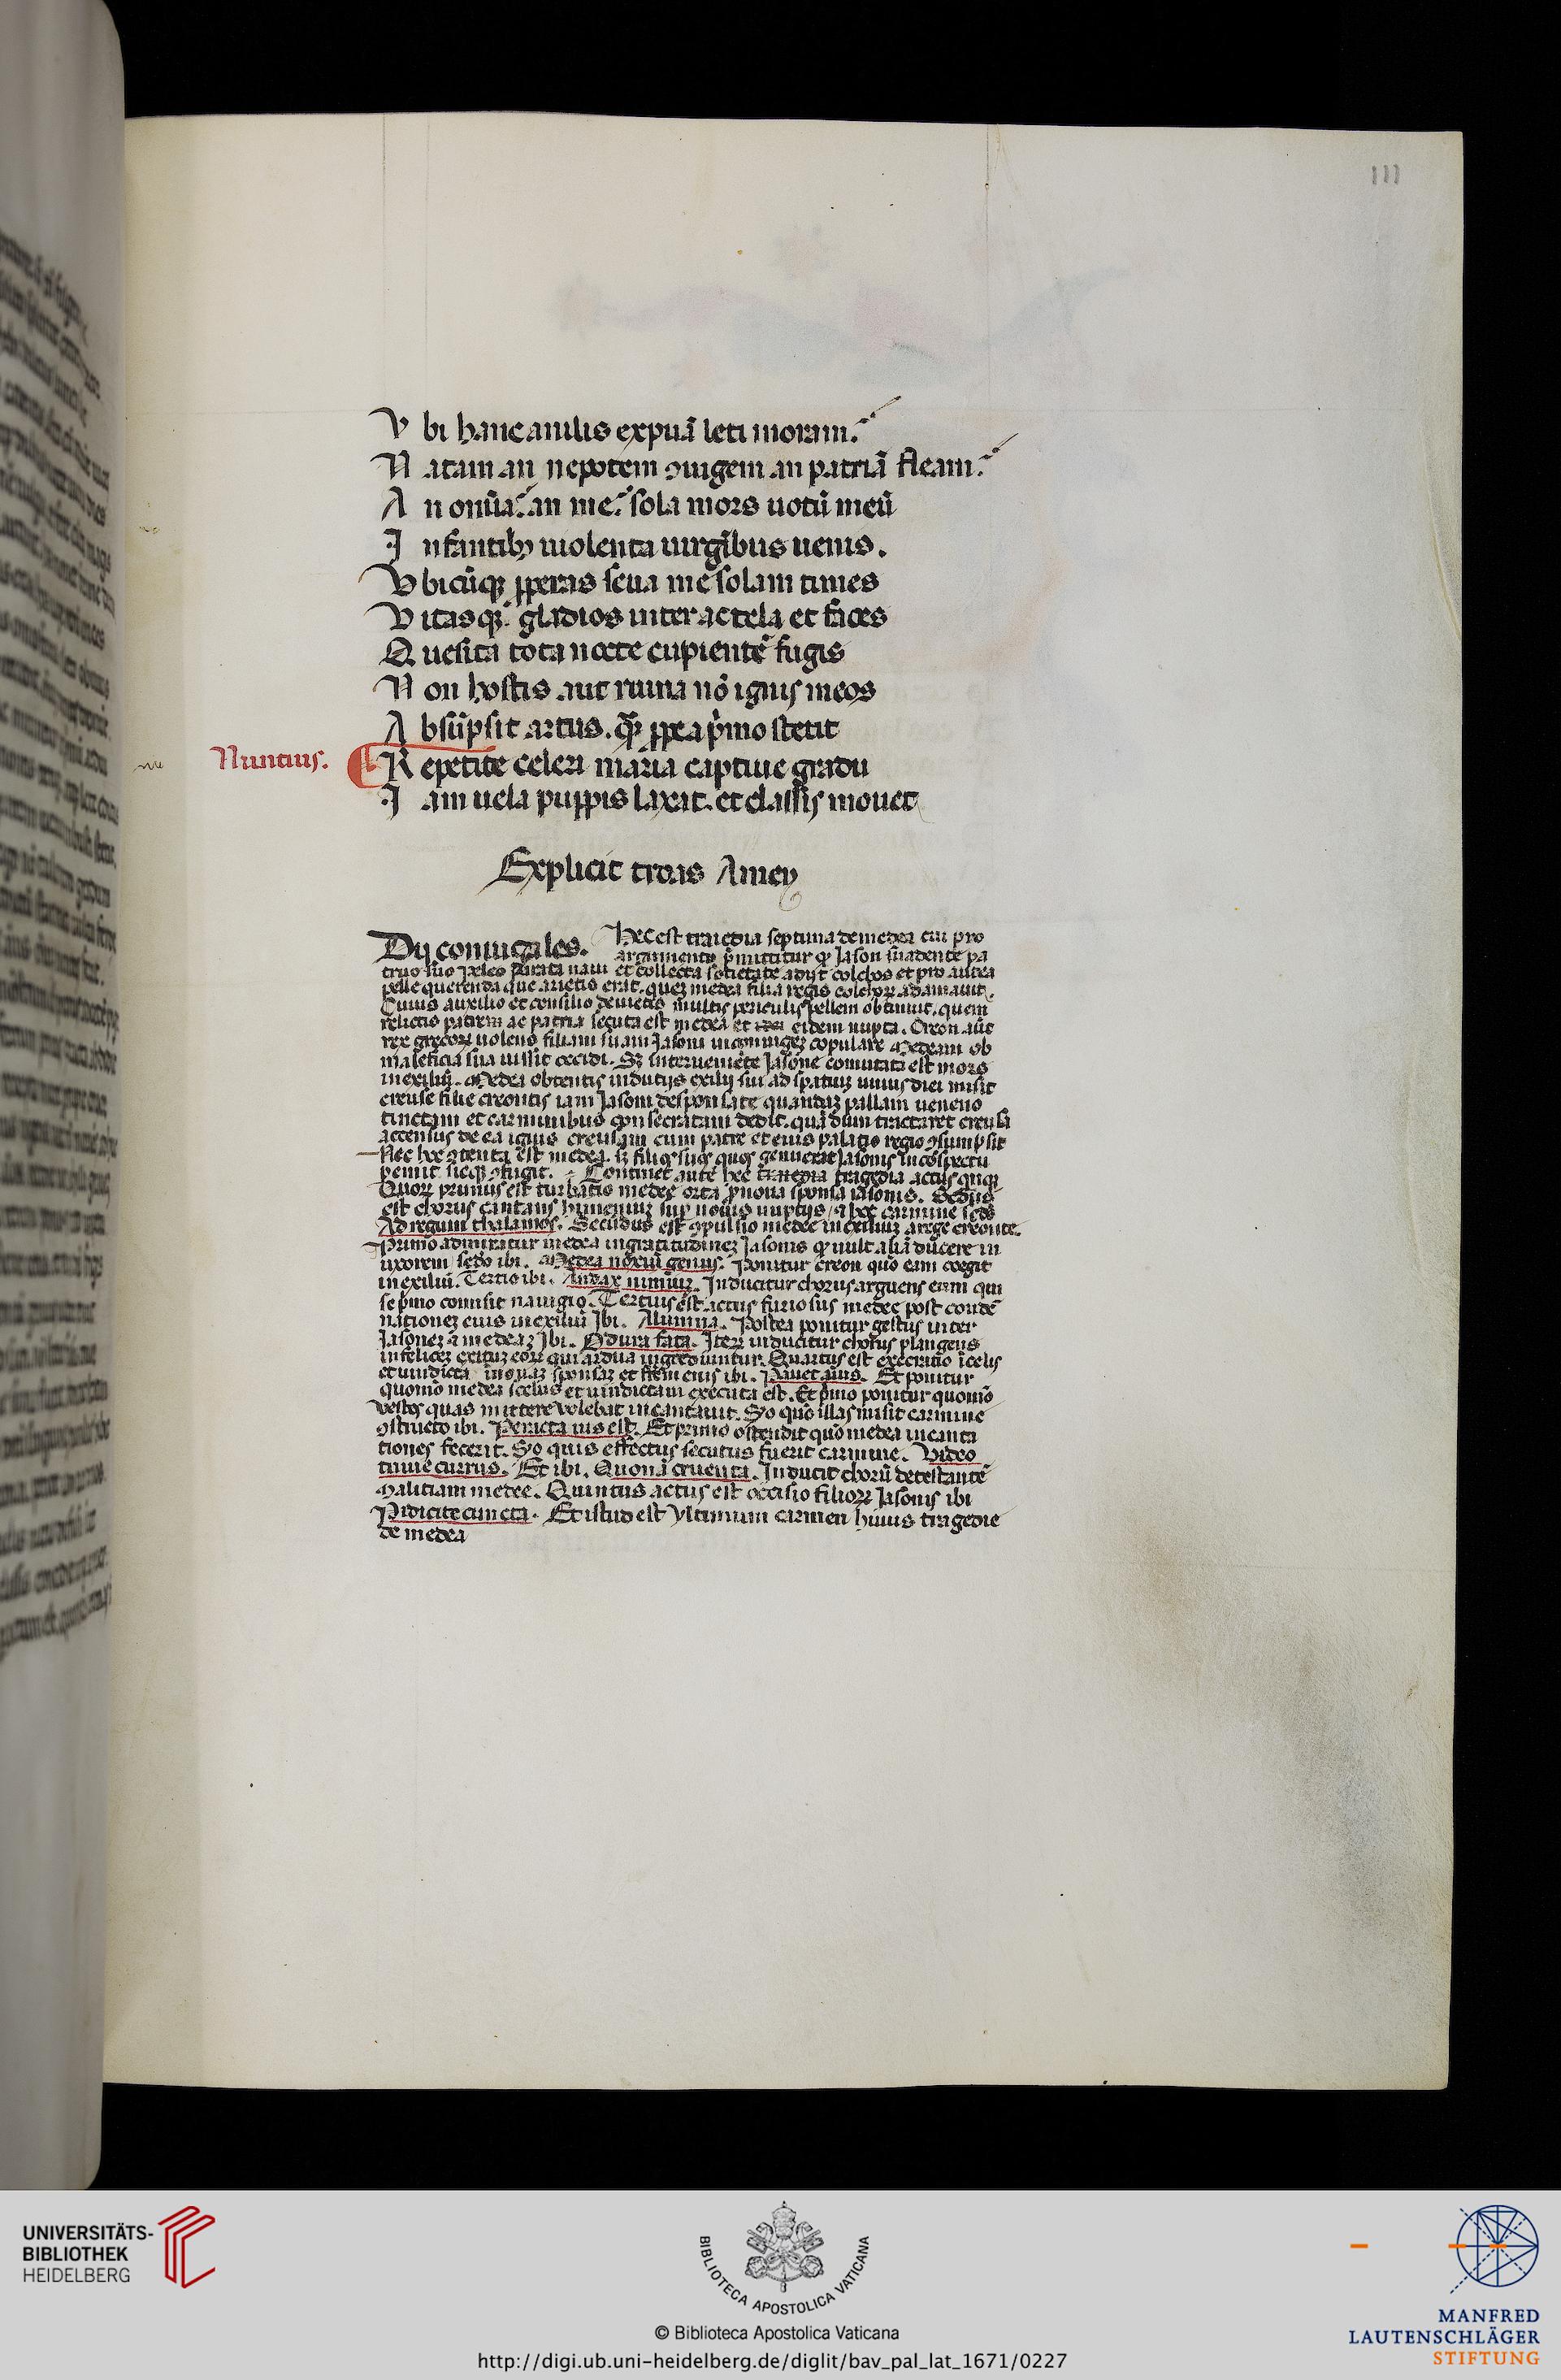 111
V bi hanc anilis expuã leti moram.
N atam an nepotem ꝯiugem an patriã fleam.
A n onĩa. an me. sola mors uotũ meũ
I nfantibꝫ uiolenta uirgĩbus uenis.
V bicũqꝫ ꝓperas seua me solam times
V itasqꝫ gladios inter ac tela et faces
Q uesita tota nocte cupientẽ fugis
N on hostis aut ruina nõ ignis meos
A bsũpsit artus. ꝓpe a pͥmo stetit
Nuntius.
R epetite celeri maria captiue gradu
I am uela puppis laxat. et classis mouet
Explicit troas Amen
Dij coniugales. Hec est traiedia septima de medea cui pro
argumento pͥmittitur ꝙ Jason suadente pa
truo suo peleo parata naui et collecta societate adijt colchos et pro aurea
pelle querenda que arietis erat. queꝫ medea filia regis colchoꝝ adamauit.
Cuius auxilio et consilio deuictis multis periculis pellem obtinuit. quem
relictis patrem ac patria secuta est medea et eidem nupta. Creon aũt
rex grecoꝝ uolens filiam suam Jasoni in coniugeꝫ copulare Medeam ob
maleficia sua iussit occidi. Sꝫ interueniẽte Jasone comutata est mors
in exiliũ. Medea obtentis inducijs exilij sui ad spatiuꝫ unius diei misit
creuse filie creontis iam Jasoni desponsate quandaꝫ pallam ueneno
tinctam et carminibus consecratam dedit. quã dum tractaret creusa
accensus de ea ignis creusam cum patre et eius palatio regio ꝯsumpsit
Nec hoc ꝯtenta est medea. sꝫ filios suos quos genuerat Jasonis in cõspectu
pemit sicqꝫ ꝯfugit. Continet autẽ hec tragedia actus qnqꝫ
Quoꝝ primus est turbatio medee orta ꝓ noua sponsa iasonis. Sedus
est chorus cantans himeneuꝫ suꝑ nouis nuptijs a hoc carmine
Ad regum thalamos. Secũdus est ꝯpulsio medee in exiliuꝫ a rege creonte.
Primo admiratur medea ingratitudineꝫ Jasonis ꝙ uult aliã ducere in
uxorem sedo ibi. Medea noxiũ genus. Ponitur creon quõ eam coegit
in exiliũ. Tertio ibi. Audax nimiũꝫ. Inducitur chorus arguens eum qui
se pͥmo comisit nauigio. Tertius est actus furiosus medee post condẽ
nationeꝫ eius in exiliũ Ibi. Alumna. Postea ponitur gestus inter
Jasoneꝫ ⁊ medeaꝫ Ibi. O dura fata. Iteꝝ inducitur chorus plangens
infeliceꝫ exituꝫ eoꝝ qui ardua ingrediuntur. Quartus est execratio ĩ celis
et uindicta in nouaꝫ sponsaꝫ et prẽm eius ibi. Pauet aĩus. Et ponitur
quomõ medea scelus et uindictam executa est. Et pͥmo ponitur quomõ
vestes quas mittere volebat incantauit. Sõ quõ illas misit carmine
ꝯstructo ibi. Peracta uis est. Et primo ostendit quõ medea incanta
tiones fecerit. Sõ quis effectus secutus fuerit carmine. Video
triuie currus. Et ibi. Quonã cruenta. Inducit chorũ detestantẽ
malitiam medee. Quintus actus est occisio filioꝝ Jasonis ibi
Pidicite cuncta. Et istud est vltimum carmen huius tragedie
de medea
UNIVERSITÄTS-
BIBLIOTHEK
HEIDELBERG
BIBLIOTECA APOSTOLICA VATICANA
© Biblioteca Apostolica Vaticana
http://digi.ub.uni-heidelberg.de/diglit/bav_pal_lat_1671/0227
MANFRED
LAUTENSCHLÄGER
STIFTUNG